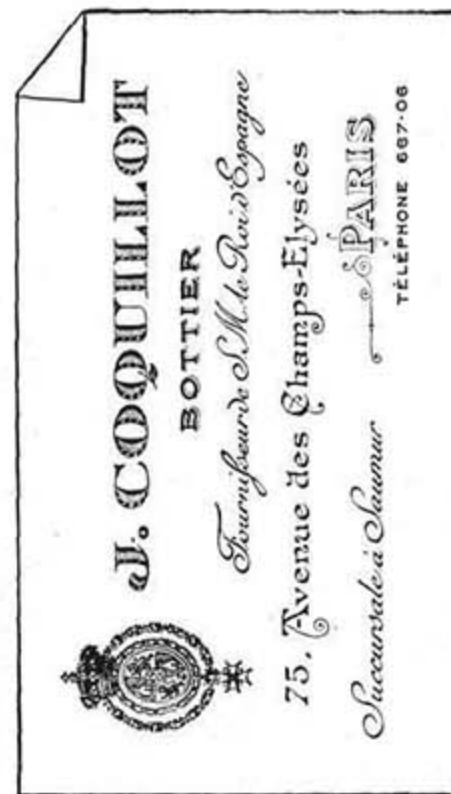 J. COQUILLOT
BOTTIER
Fournisseur de S.M. le Roi d'Espagne
75, Avenue des Champs-Elysées
Succursale à Saumur
PARIS
TÉLÉPHONE 667-06